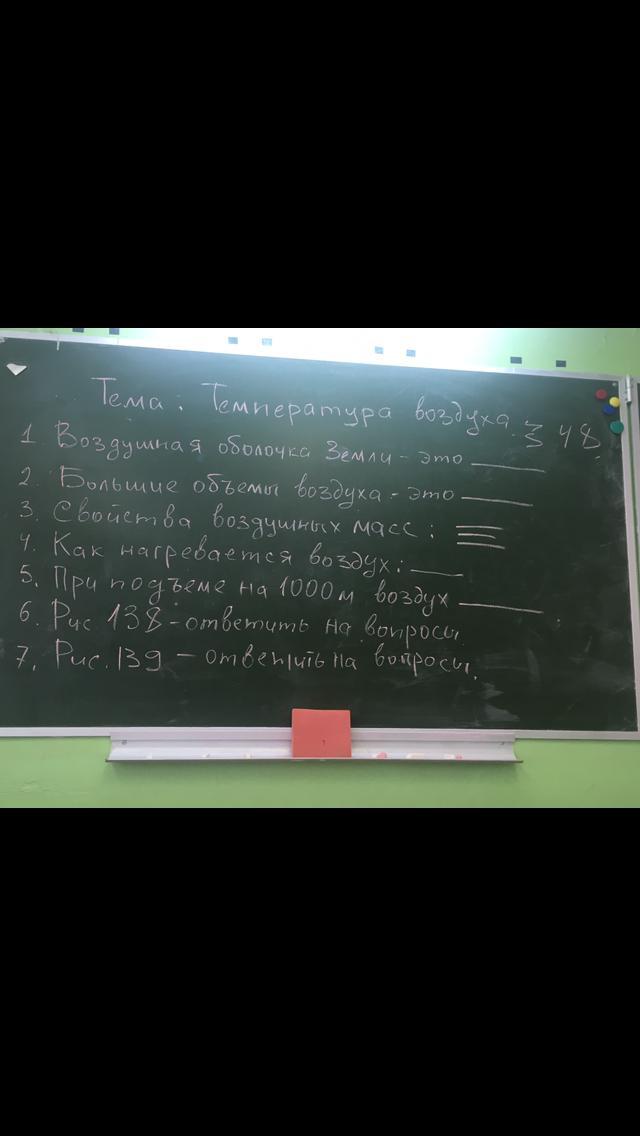 Тема: Температура воздуха. § 48.
1. Воздушная оболочка Земли - это ____
2. Большие объемы воздуха - это ____
3. Свойства воздушных масс:
4. Как нагревается воздух: ____
5. При подъеме на 1000 м воздух ____
6. Рис 138 - ответить на вопросы
7. Рис. 139 - ответить на вопросы.